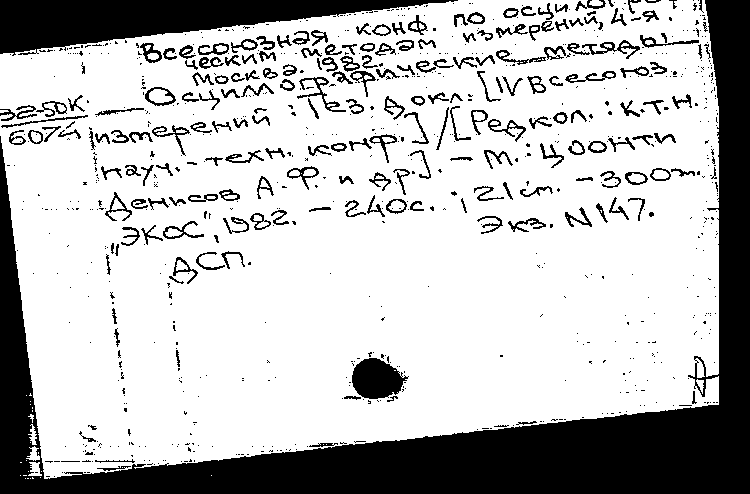 Всесоюзная конф. по осциллогра-
ческим методам измерений, 4-я.
Москва. 1982.
32-50К Осциллографические методы
6074 измерений : Тез. докл. [IV Всесоюз.
науч.-техн. конф.] / [Редкол. : к.т.н.
Денисов А.Ф. и др.]. - М. : ЦООНТИ
"ЭКОС", 1982. - 240с. ; 21 см. - 300 экз.
Экз. N 147.
ДСП.